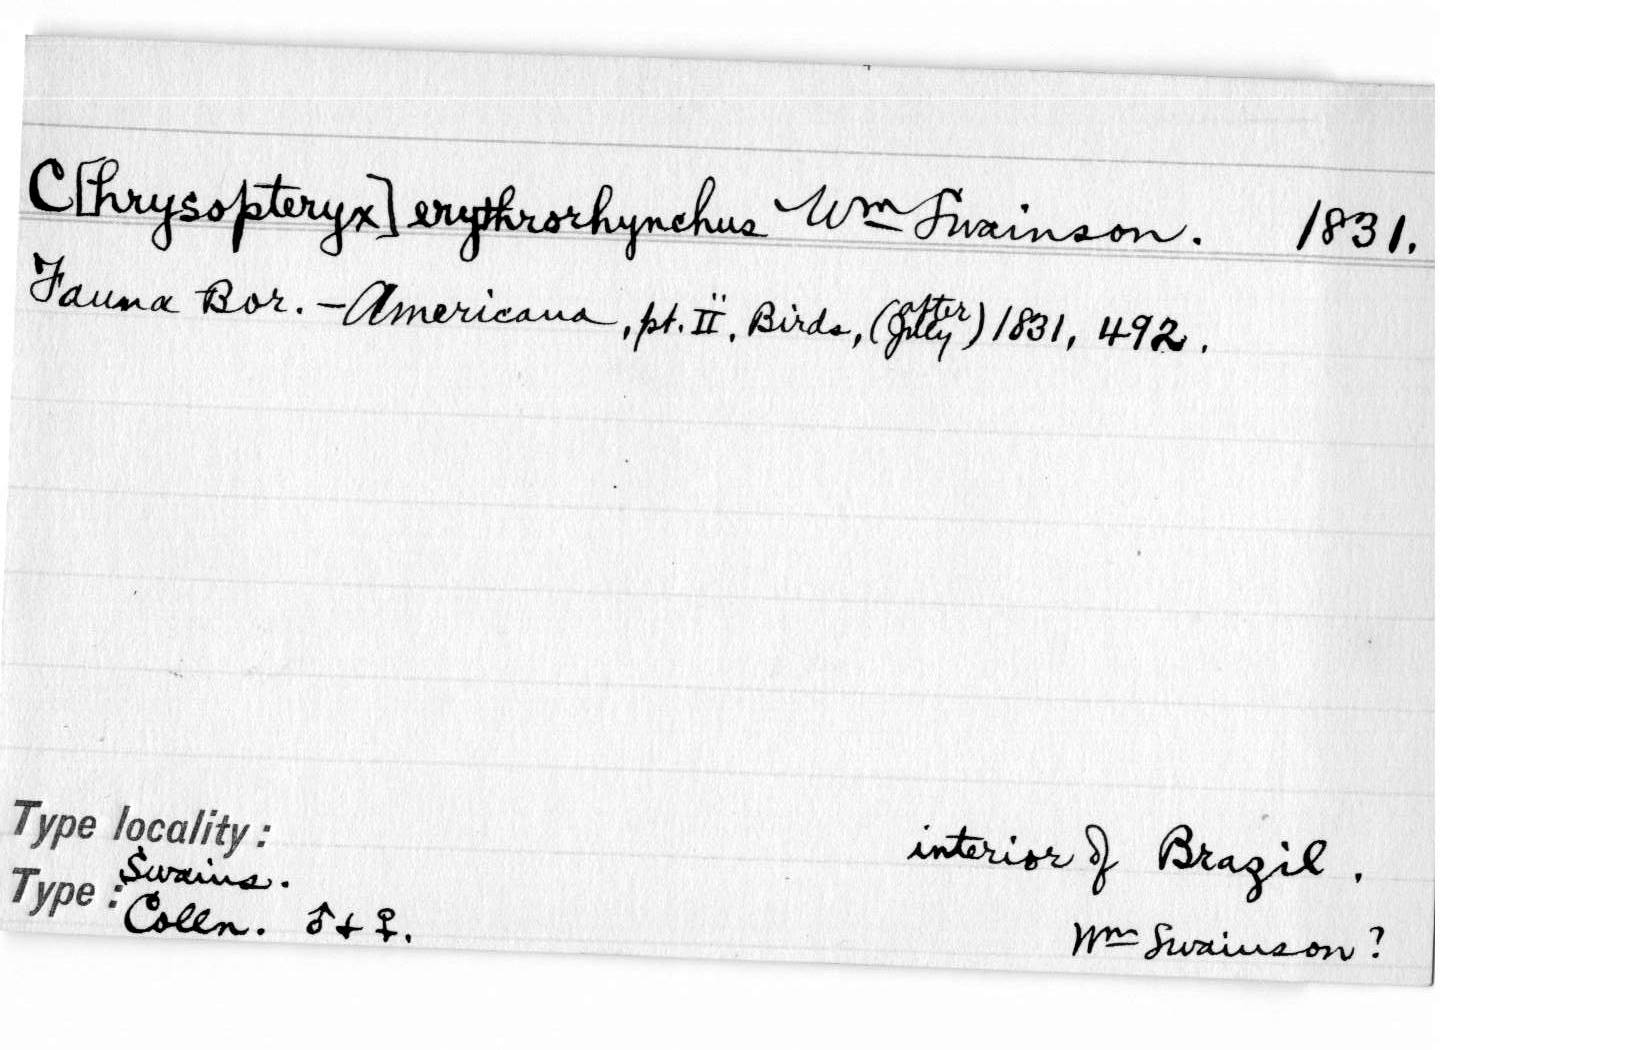 C[hrysopteryx] erythrorhynchus Wm Swainson. 1831.
Fauna Bor.-Americana, pt. II, Birds, (after July) 1831, 492.
Type locality: interior of Brazil.
Type: Swains. Colln. ♂ + ♀. Wm Swainson?